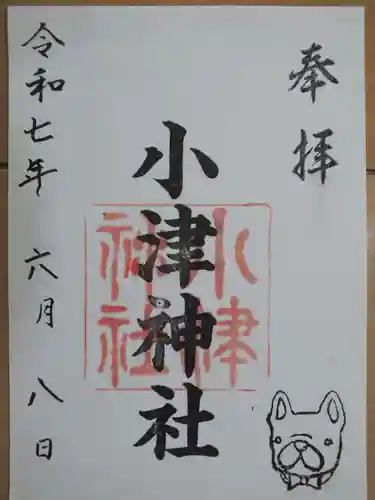 奉拝
小津神社
小津
神社
令和七年 六月 八日